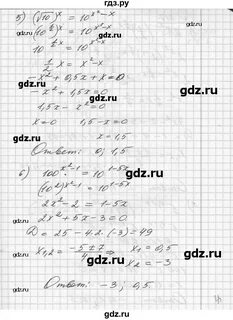 гдз.ру
5) (√10)ˣ = 10^(x²-x)
(10^(1/2))ˣ = 10^(x²-x)
10^(1/2 x) = 10^(x²-x)
1/2 x = x² - x
-x² + 0,5x + x = 0
-x² + 1,5x = 0
1,5x - x² = 0
x = 0    1,5 - x = 0
x = 1,5
Ответ: 0; 1,5
6) 100^(x²-1) = 10^(1-5x)
(10²)^(x²-1) = 10^(1-5x)
2x² - 2 = 1 - 5x
2x² + 5x - 3 = 0
D = 25 - 4·2·(-3) = 49
x₁,₂ = (-5 ± 7)/4 ⇒ x₁ = 0,5
x₂ = -3
Ответ: -3; 0,5